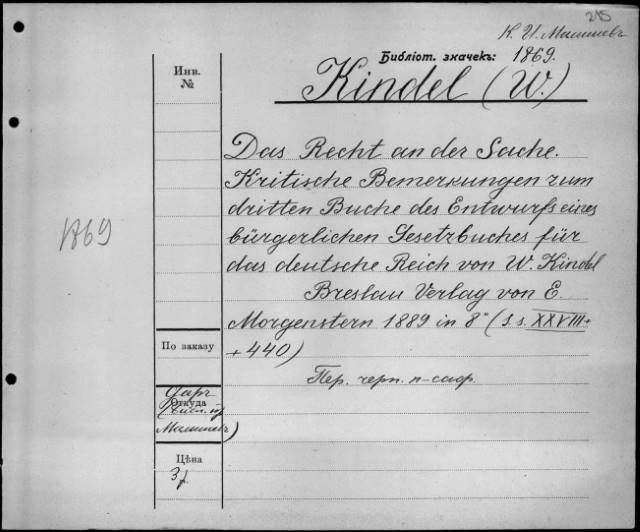 215
К. И. Малышевъ
Бібліот. значекъ: 1869.
Инв.
№
Kindel (W.)
Das Recht an der Sache.
Kritische Bemerkungen zum
dritten Buche des Entwurfs eines
bürgerlichen Gesetzbuches für
das deutsche Reich von W. Kindel
Breslau Verlag von E.
Morgenstern 1889 in 8° (S. s. XXVIII +
+ 440)
1869
По заказу
Пер. черн. п-саф.
даръ
Откуда
Малышевъ)
Цѣна
3 р.